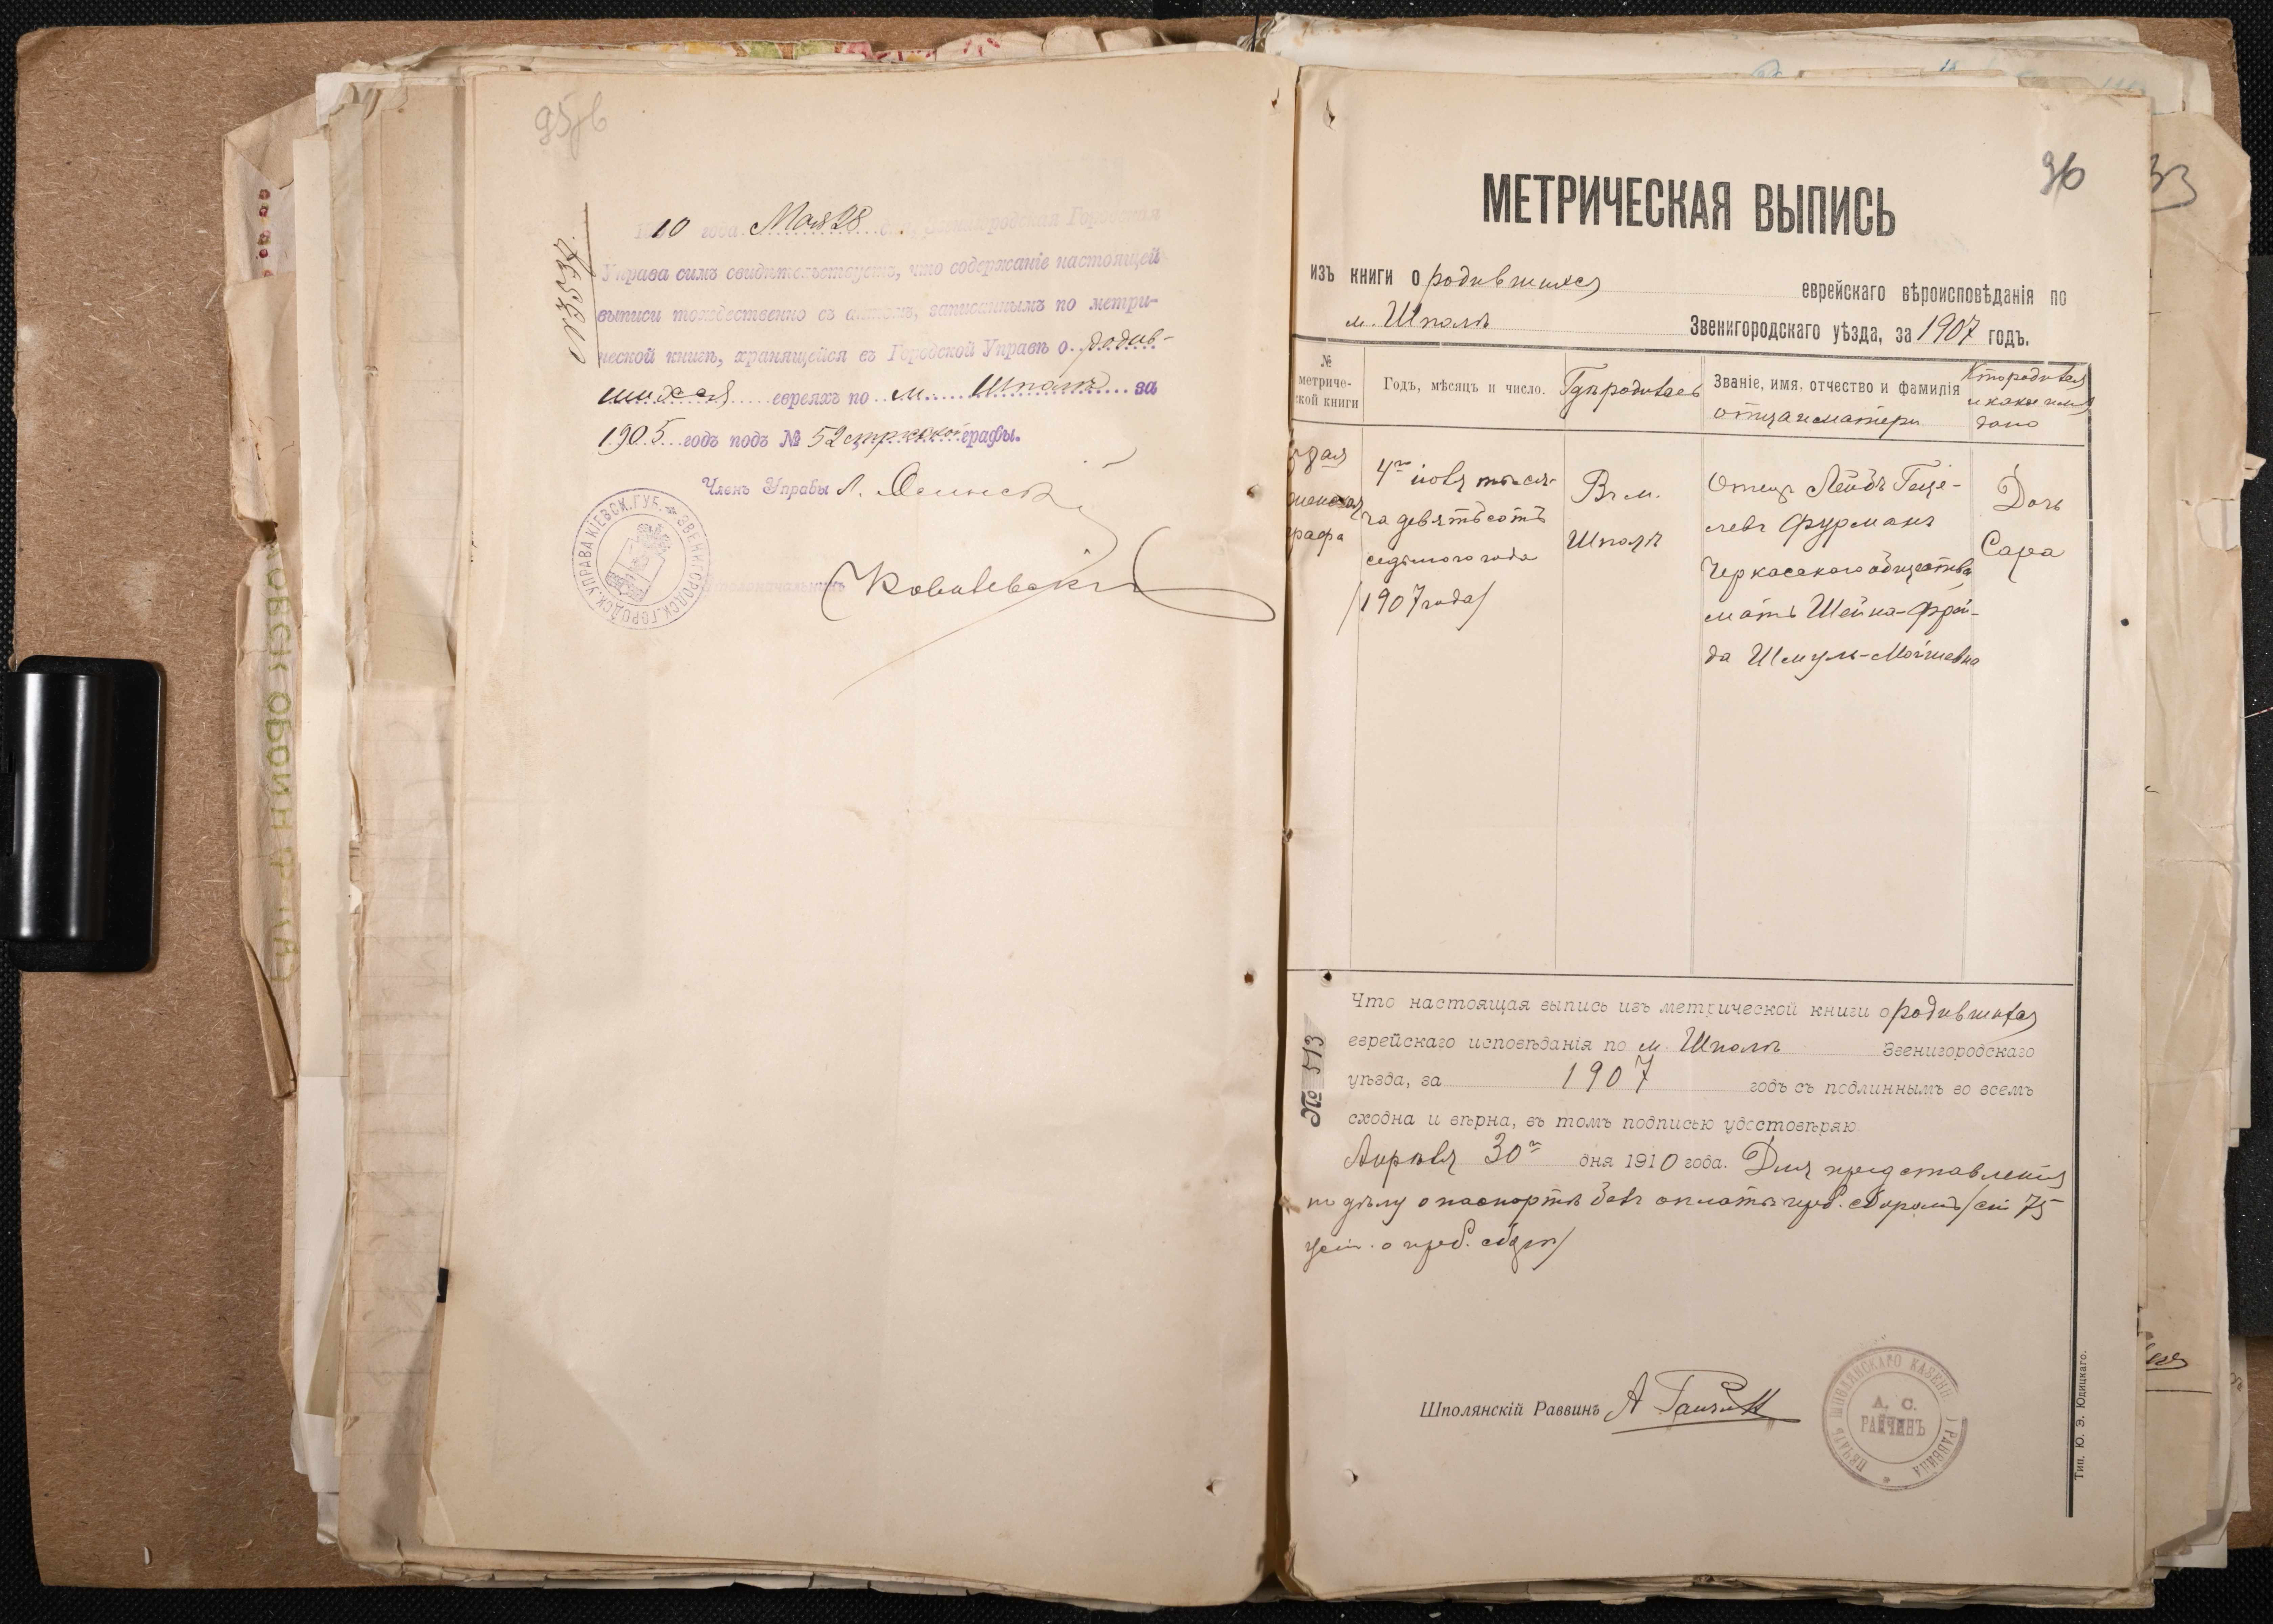 95 об
№ 3537.
1910 года Мая 28 дня, Звенигородская Городская
Управа симъ свидѣтельствуетъ, что содержаніе настоящей
выписи тождественно съ актомъ, записаннымъ по метри-
ческой книгѣ, хранящейся въ Городской Управѣ о родив-
шихся евреяхъ по м. Шполѣ за
1905 годъ подъ № 52 женской графы.
Членъ Управы Л.
Столоначальникъ Ковалевскій
ЗВЕНИГОРОДСК. ГОРОДСК. УПРАВА КІЕВСК. ГУБ.
96
33
МЕТРИЧЕСКАЯ ВЫПИСЬ
изъ книги о родившихся еврейскаго вѣроисповѣданія по
м. Шполѣ Звенигородскаго уѣзда, за 1907 годъ.
№ метриче-
ской книги
Годъ, мѣсяцъ и число.
Гдѣ родилась
Званіе, имя, отчество и фамилія
отца и матери
Кто родился
и какое имя
дано
женская
графа
4го іюля тыся-
ча девятьсотъ
седьмого года
/1907 года/
Въ м.
Шполѣ
Отецъ Лейбъ Геце-
левъ Фурманъ
Черкасскаго общества,
мать Шейна-Фрей-
да Шмуль-Мойшевна
Дочь
Сара
№ 513
Что настоящая выпись изъ метрической книги о родившихся
еврейскаго исповѣданія по м. Шполѣ Звенигородскаго
уѣзда, за 1907 годъ съ подлиннымъ во всемъ
сходна и вѣрна, въ томъ подписью удостовѣряю
Апрѣля 30го дня 1910 года. Для представленія
по дѣлу о паспортѣ безъ оплаты герб. сборомъ /ст. 75
уст. о герб. сборѣ/
Шполянскій Раввинъ А Райчинъ
ПЕЧАТЬ ШПОЛЯНСКАГО КАЗЕНН. РАВВИНА
А. С.
РАЙЧИНЪ
Тип. Ю. Э. Юдицкаго.